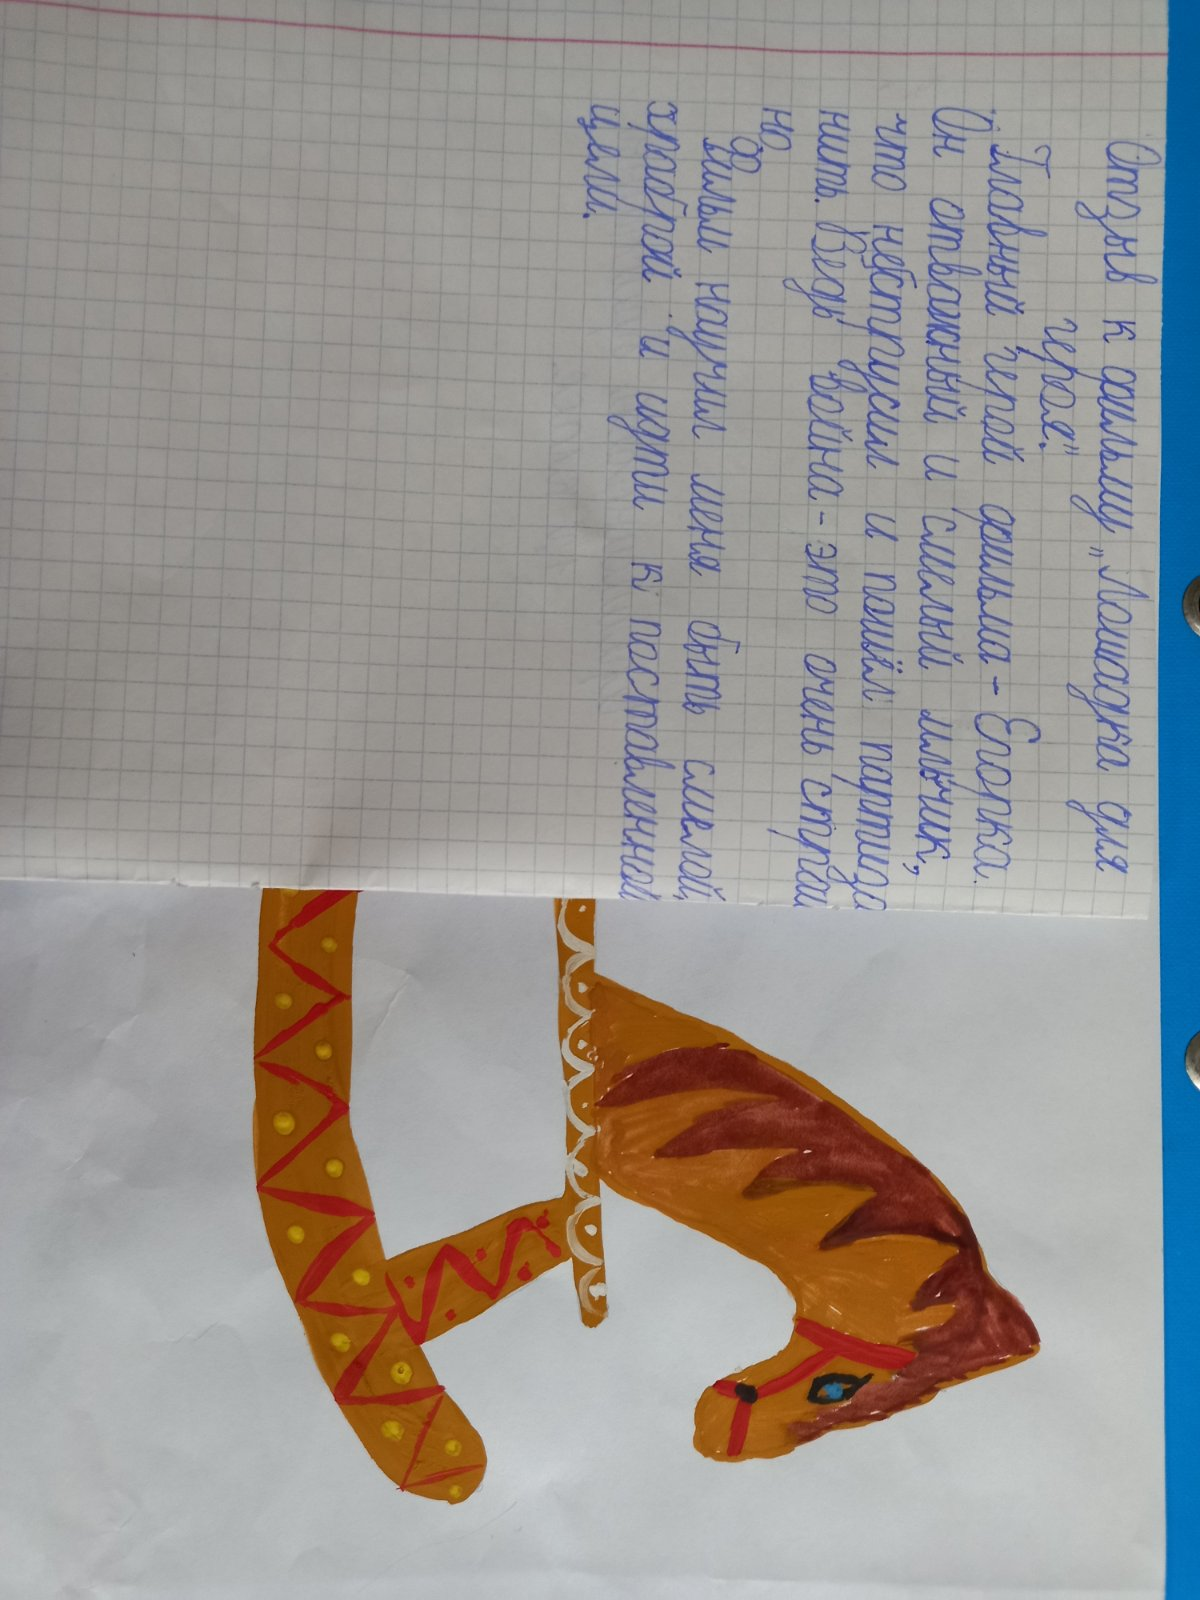 Отзыв к фильму „Лошадка для
героя".
Главный герой фильма - Егорка.
Он отважный и смелый мльчик,
что неструсил и пошёл партиза
нить. Ведь война - это очень страш
но.
Фильм научил меня быть смелой,
храброй и идти к поставленной
цели.